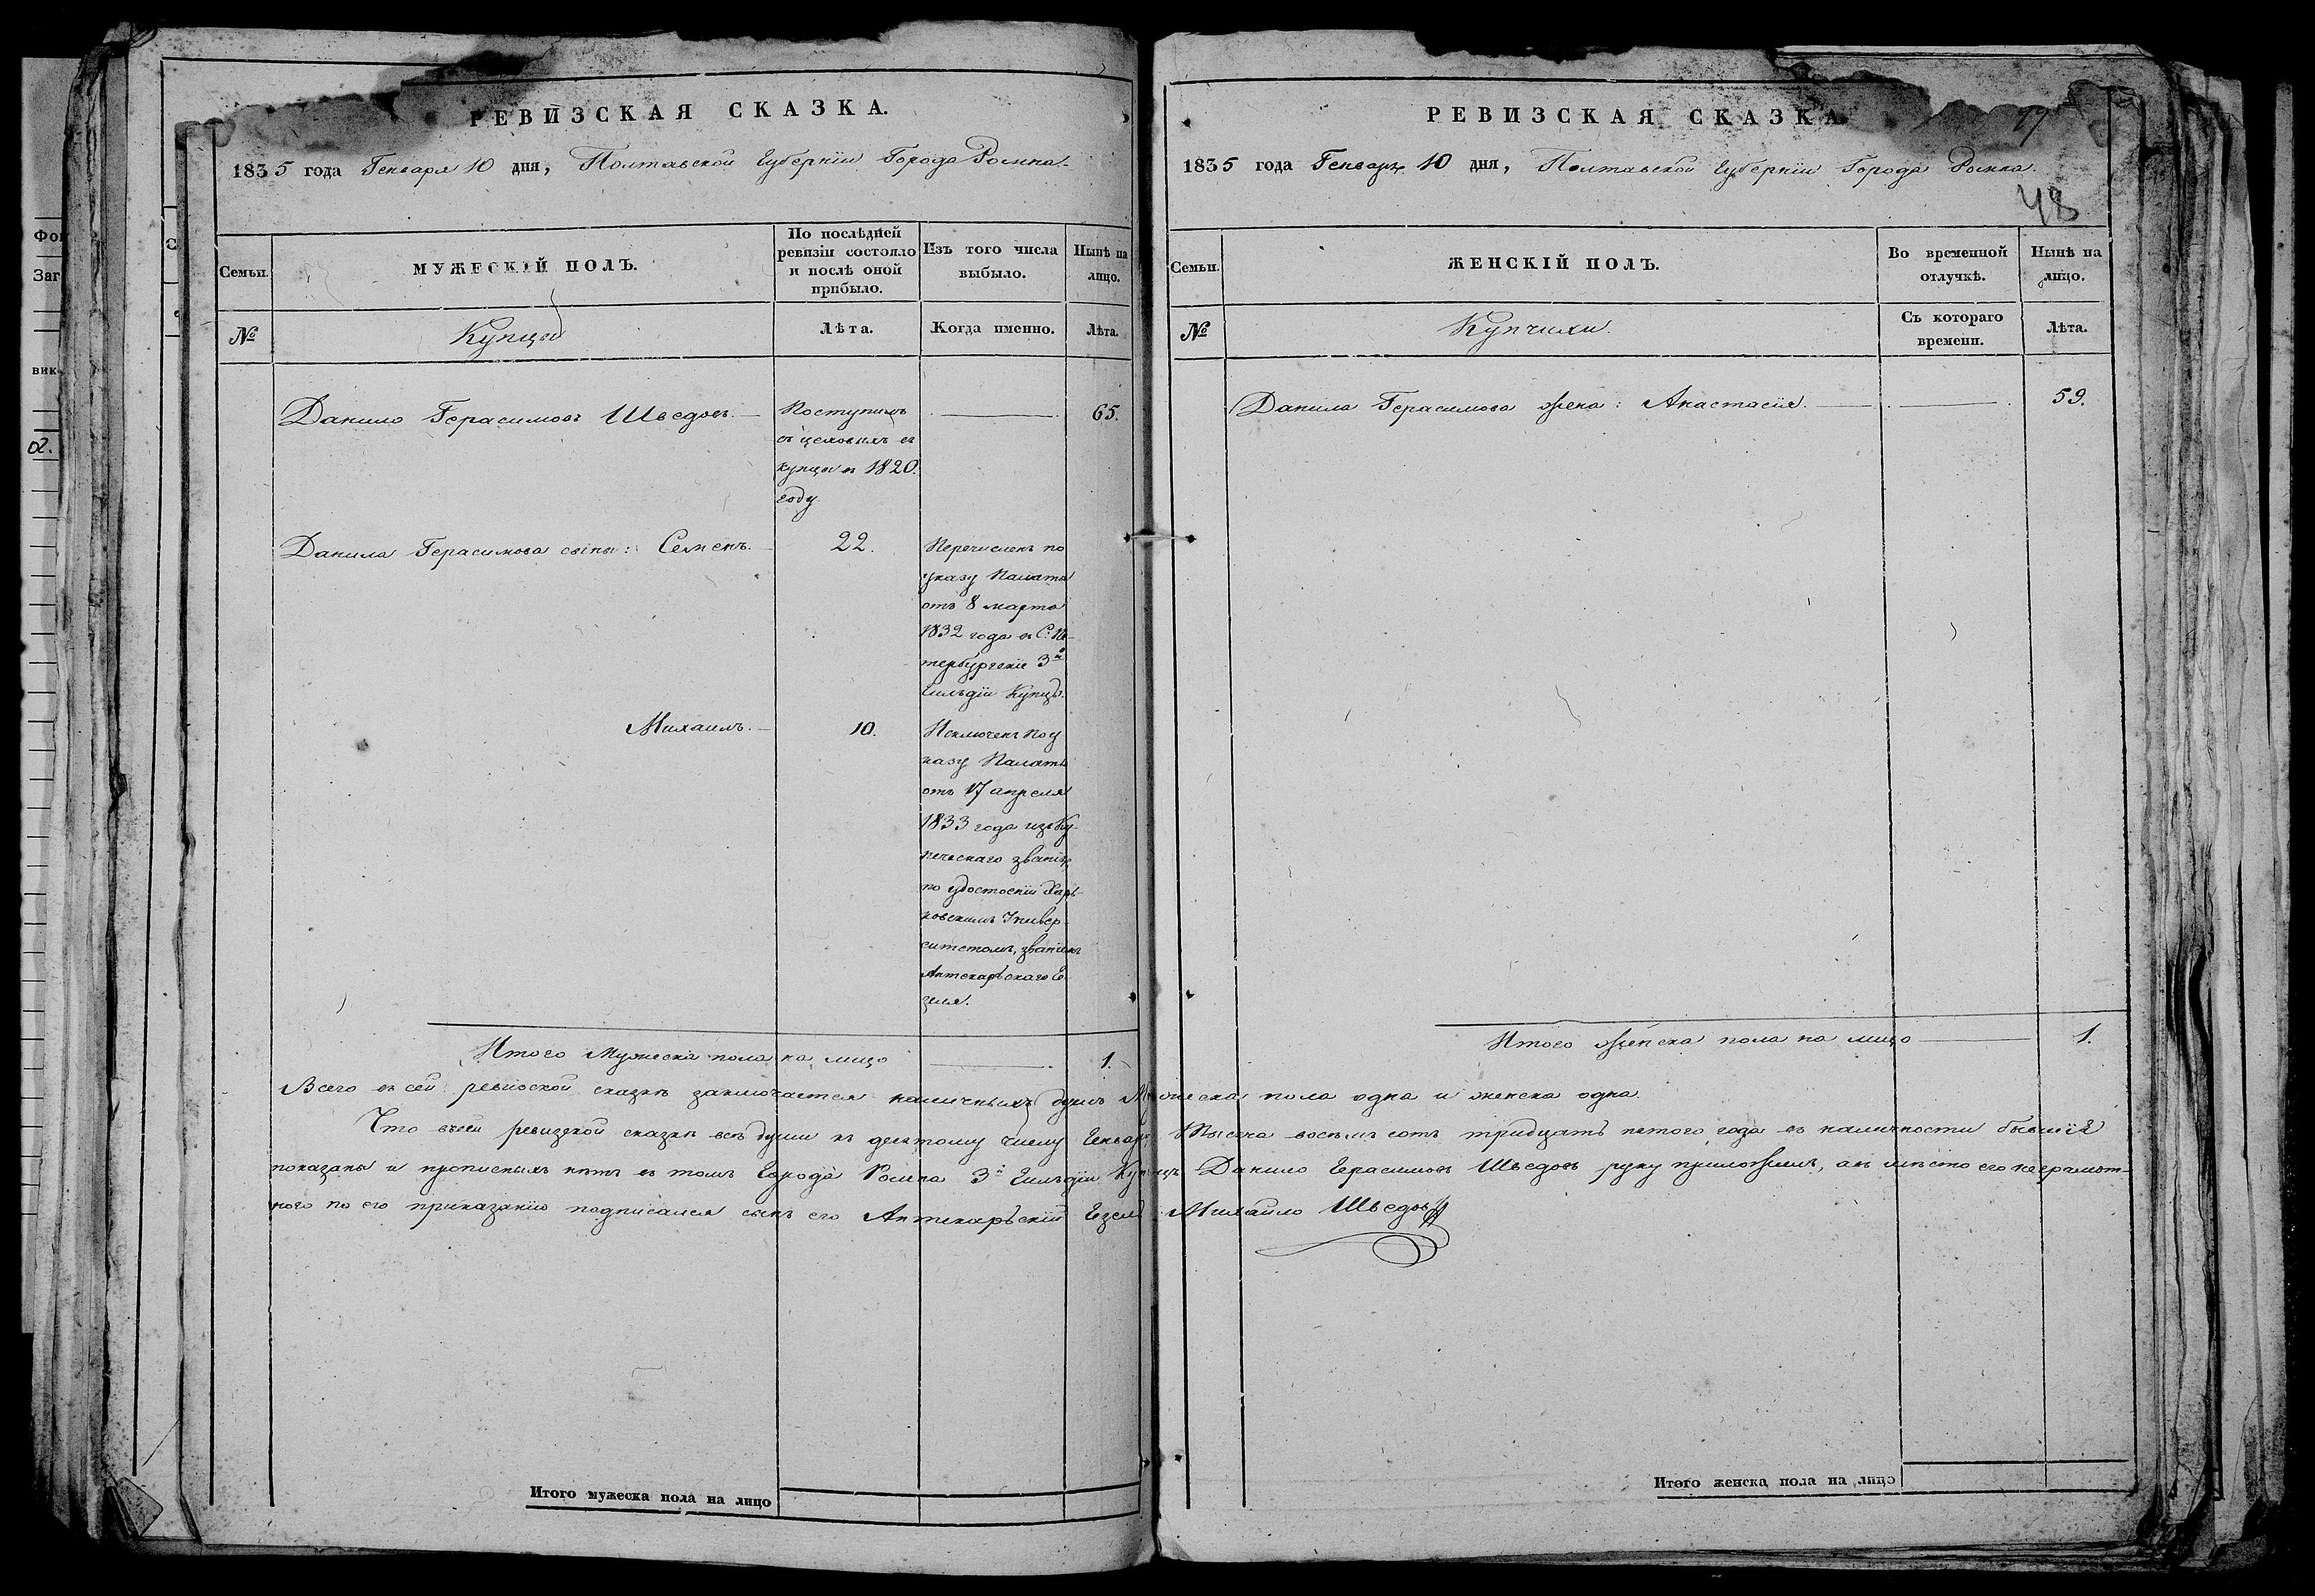 Фон
Заг
вик
02.
РЕВИЗСКАЯ СКАЗКА.
1835 года Генваря 10 дня, Полтавской Губернїи Города Ромна.
Семьи.
МУЖЕСКІЙ ПОЛЪ.
По послѣдней
ревизіи состояло
и послѣ оной
прибыло.
Изъ того числа
выбыло.
Нынѣ на
лицо.
№
Купцы
Лѣта.
Когда именно.
Лѣта.
Данило Герасимовъ Шведовъ.
Поступилъ
въ
купцы въ 1820.
году.
65.
Данила Герасимова сыны: Семенъ.
22.
Перечисленъ по
указу Палаты
отъ 8 марта
1832 года въ С: Пе-
тербургскіе 3й
Гильдїи Купцы.
Михаилъ.
10.
Исключенъ по у
казу Палаты
отъ 17 апреля
1833 года изъ Ку-
печескаго званія,
по удостоеніи Харь-
ковскимъ Универ-
ситетомъ, званіемъ
Аптекарьскаго Ге-
зеля.
Итого Мужеска пола на лицо
1.
РЕВИЗСКАЯ СКАЗКА
19
1835 года Генваря 10 дня, Полтавской Губернїи Города Ромна.
48
Семьи.
ЖЕНСКІЙ ПОЛЪ.
Во временной
отлучкѣ.
Нынѣ на
лицо.
№
Купчихи.
Съ котораго
времени.
Лѣта.
Данила Герасимова жена: Анастасія.
59.
Итого женска пола на лицо
1.
Всего въ сей ревизской сказкѣ заключается наличныхъ душъ Мужеска пола одна и женска одна.
Что въ сей ревизской сказкѣ всѣ души къ десятому числу Генваря тысяча восемь сотъ тридцать пятого года въ наличности бывшія
показаны и прописныхъ нѣтъ въ томъ Города Ромна 3й Гильдїи Купецъ Данило Герасимовъ Шведовъ руку приложилъ, а вмѣсто его неграмот-
ного по его приказанію подписался сынъ его Аптекарьскій Гезель Михайло Шведовъ
Итого мужеска пола на лицо
Итого женска пола на лицо